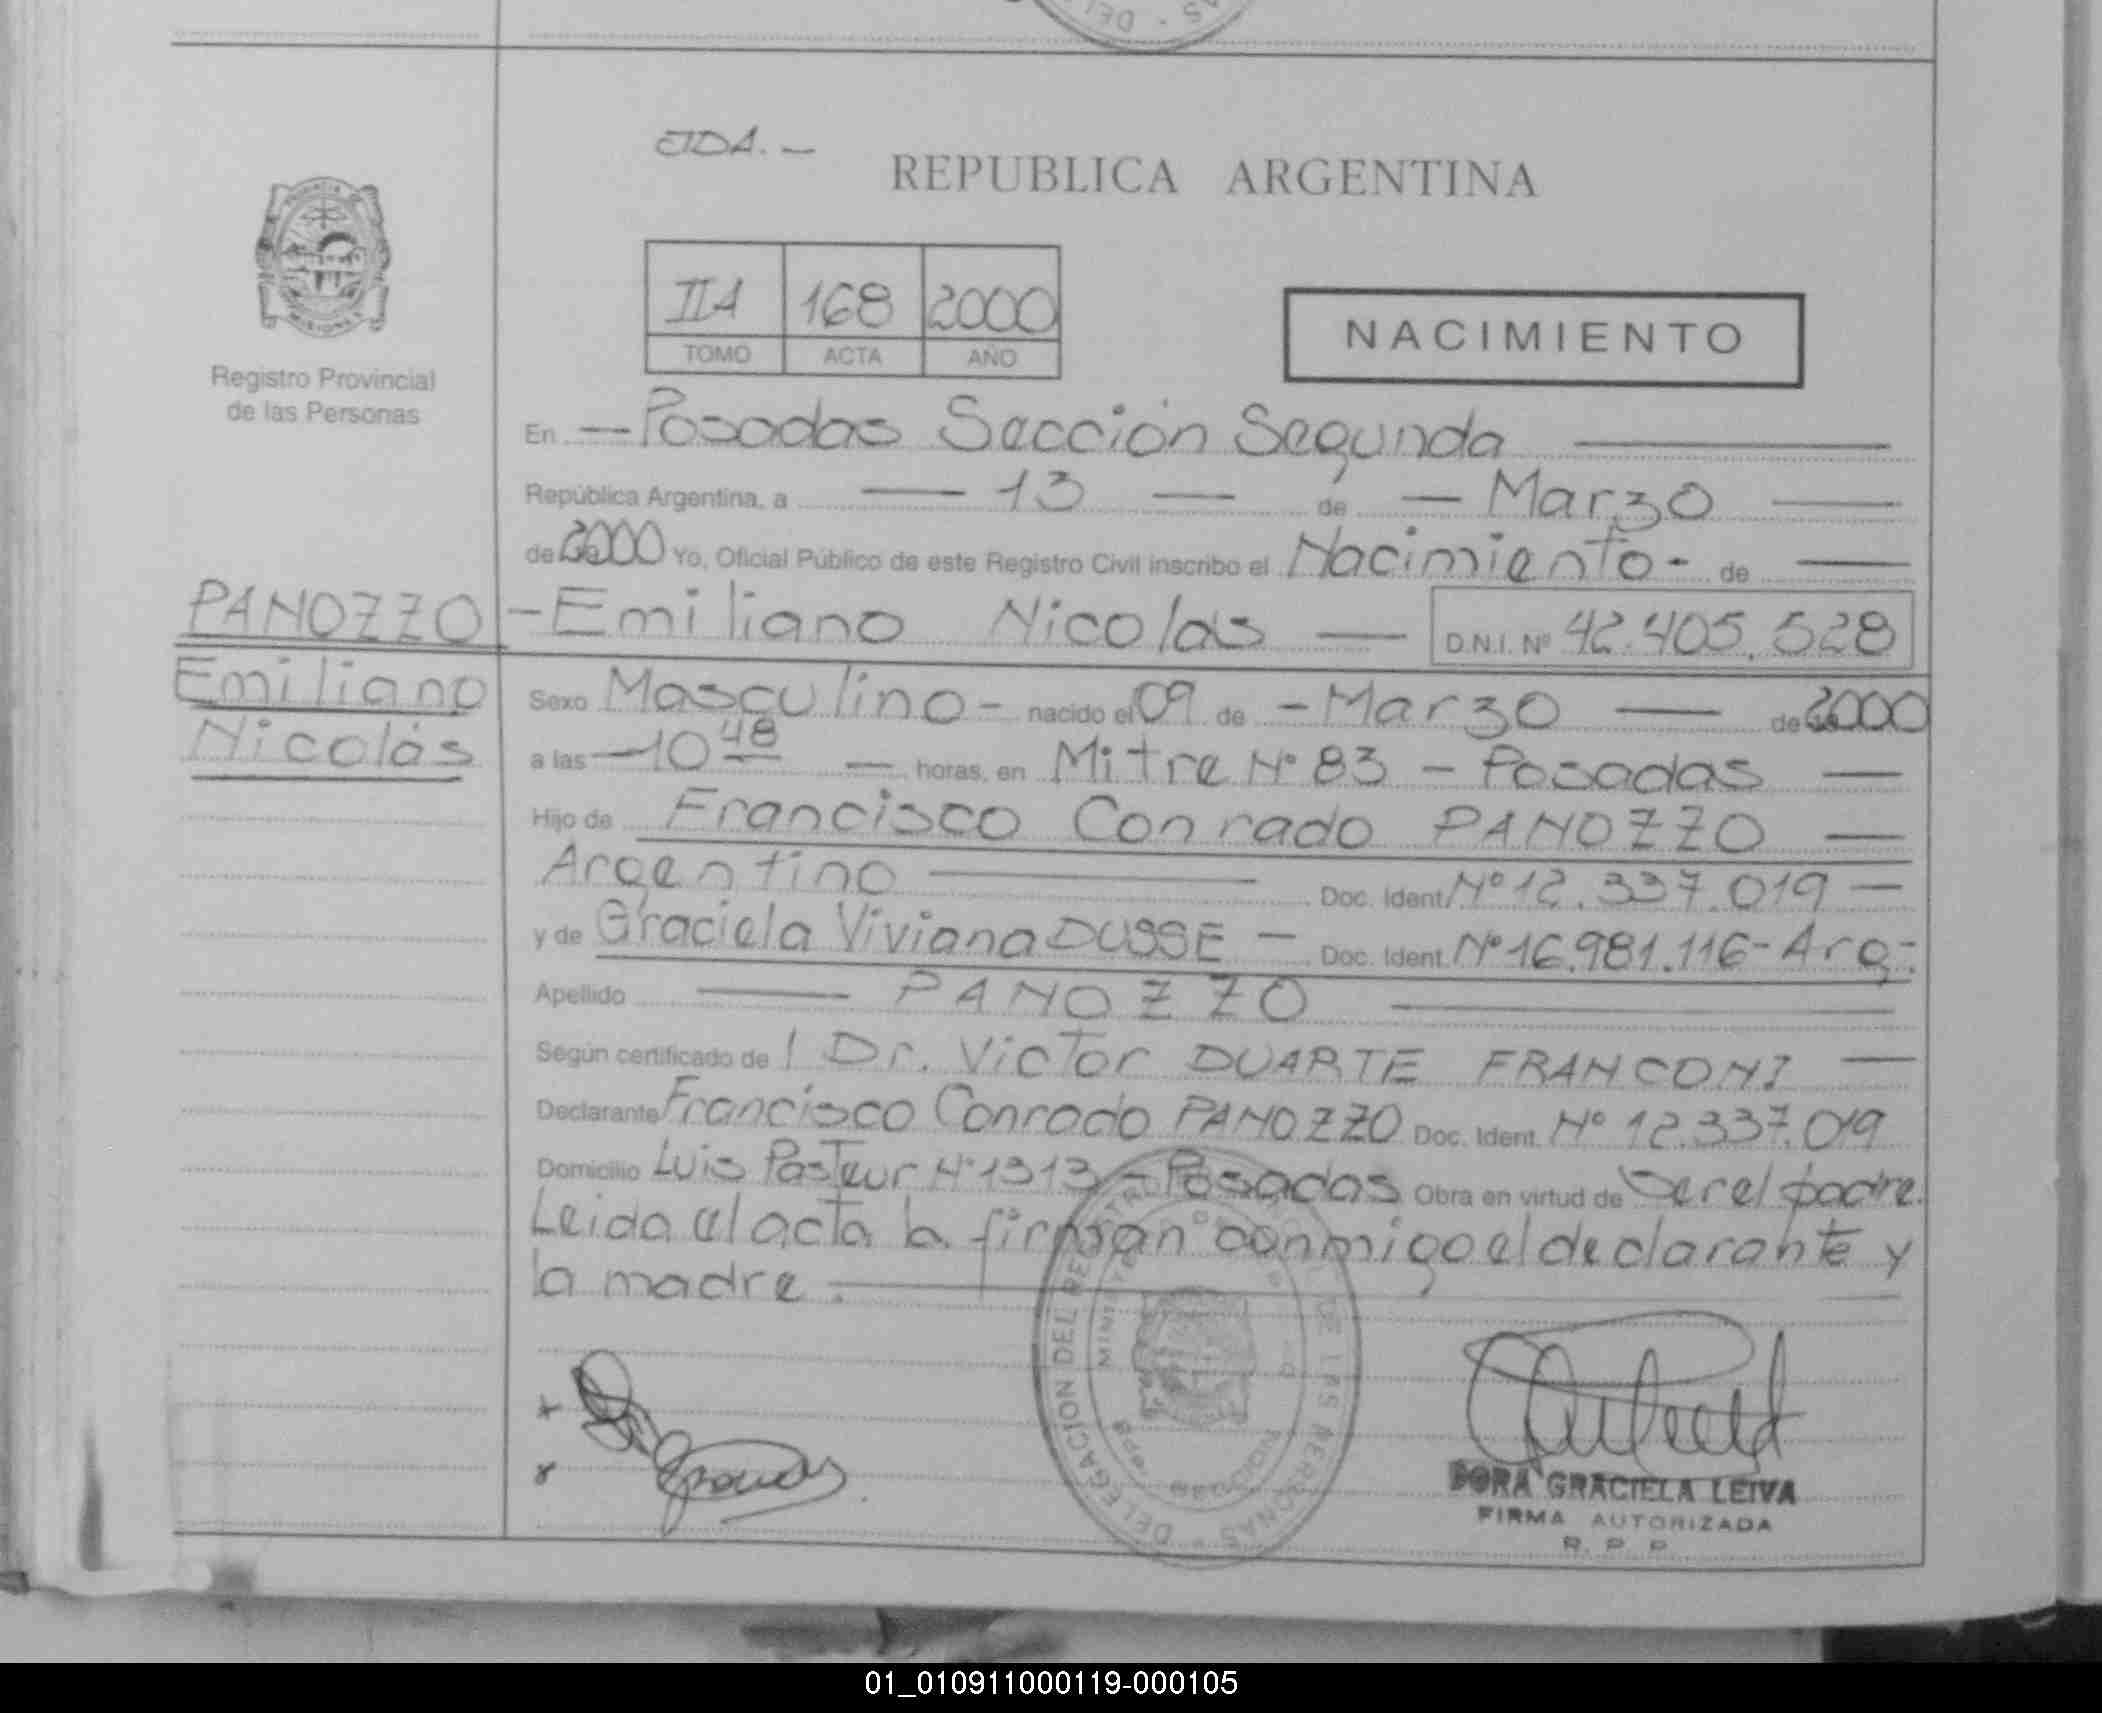 CIDA.-
REPUBLICA ARGENTINA
IIA 168 2000
TOMO ACTA AÑO
NACIMIENTO
Registro Provincial
de las Personas
En — Posadas Sección Segunda —
República Argentina, a — 13 — de — Marzo —
de 2000 Yo, Oficial Público de este Registro Civil inscribo el Nacimiento - de —
PANOZZO - Emiliano Nicolás — D.N.I. Nº 42.405.528
Emiliano
Nicolás
Sexo Masculino - nacido el 09 de - Marzo — de 2000
a las — 10 48 — horas, en Mitre Nº 83 - Posadas —
Hijo de Francisco Conrado PANOZZO —
Argentino — Doc. Ident. Nº 12.337.019 —
y de Graciela Viviana DUSSE — Doc. Ident. Nº 16.981.116 - Arg.-
Apellido — PANOZZO —
Según certificado de / Dr. Victor DUARTE FRANCONI —
Declarante Francisco Conrado PANOZZO Doc. Ident. Nº 12.337.019
Domicilio Luis Pasteur Nº 1313 - Posadas Obra en virtud de Ser el padre.
Leida el acta la firman conmigo el declarante y
la madre.
DELEGACION DEL REGISTRO DE LAS PERSONAS
DORA GRACIELA LEIVA
FIRMA AUTORIZADA
R. P. P.
01_010911000119-000105